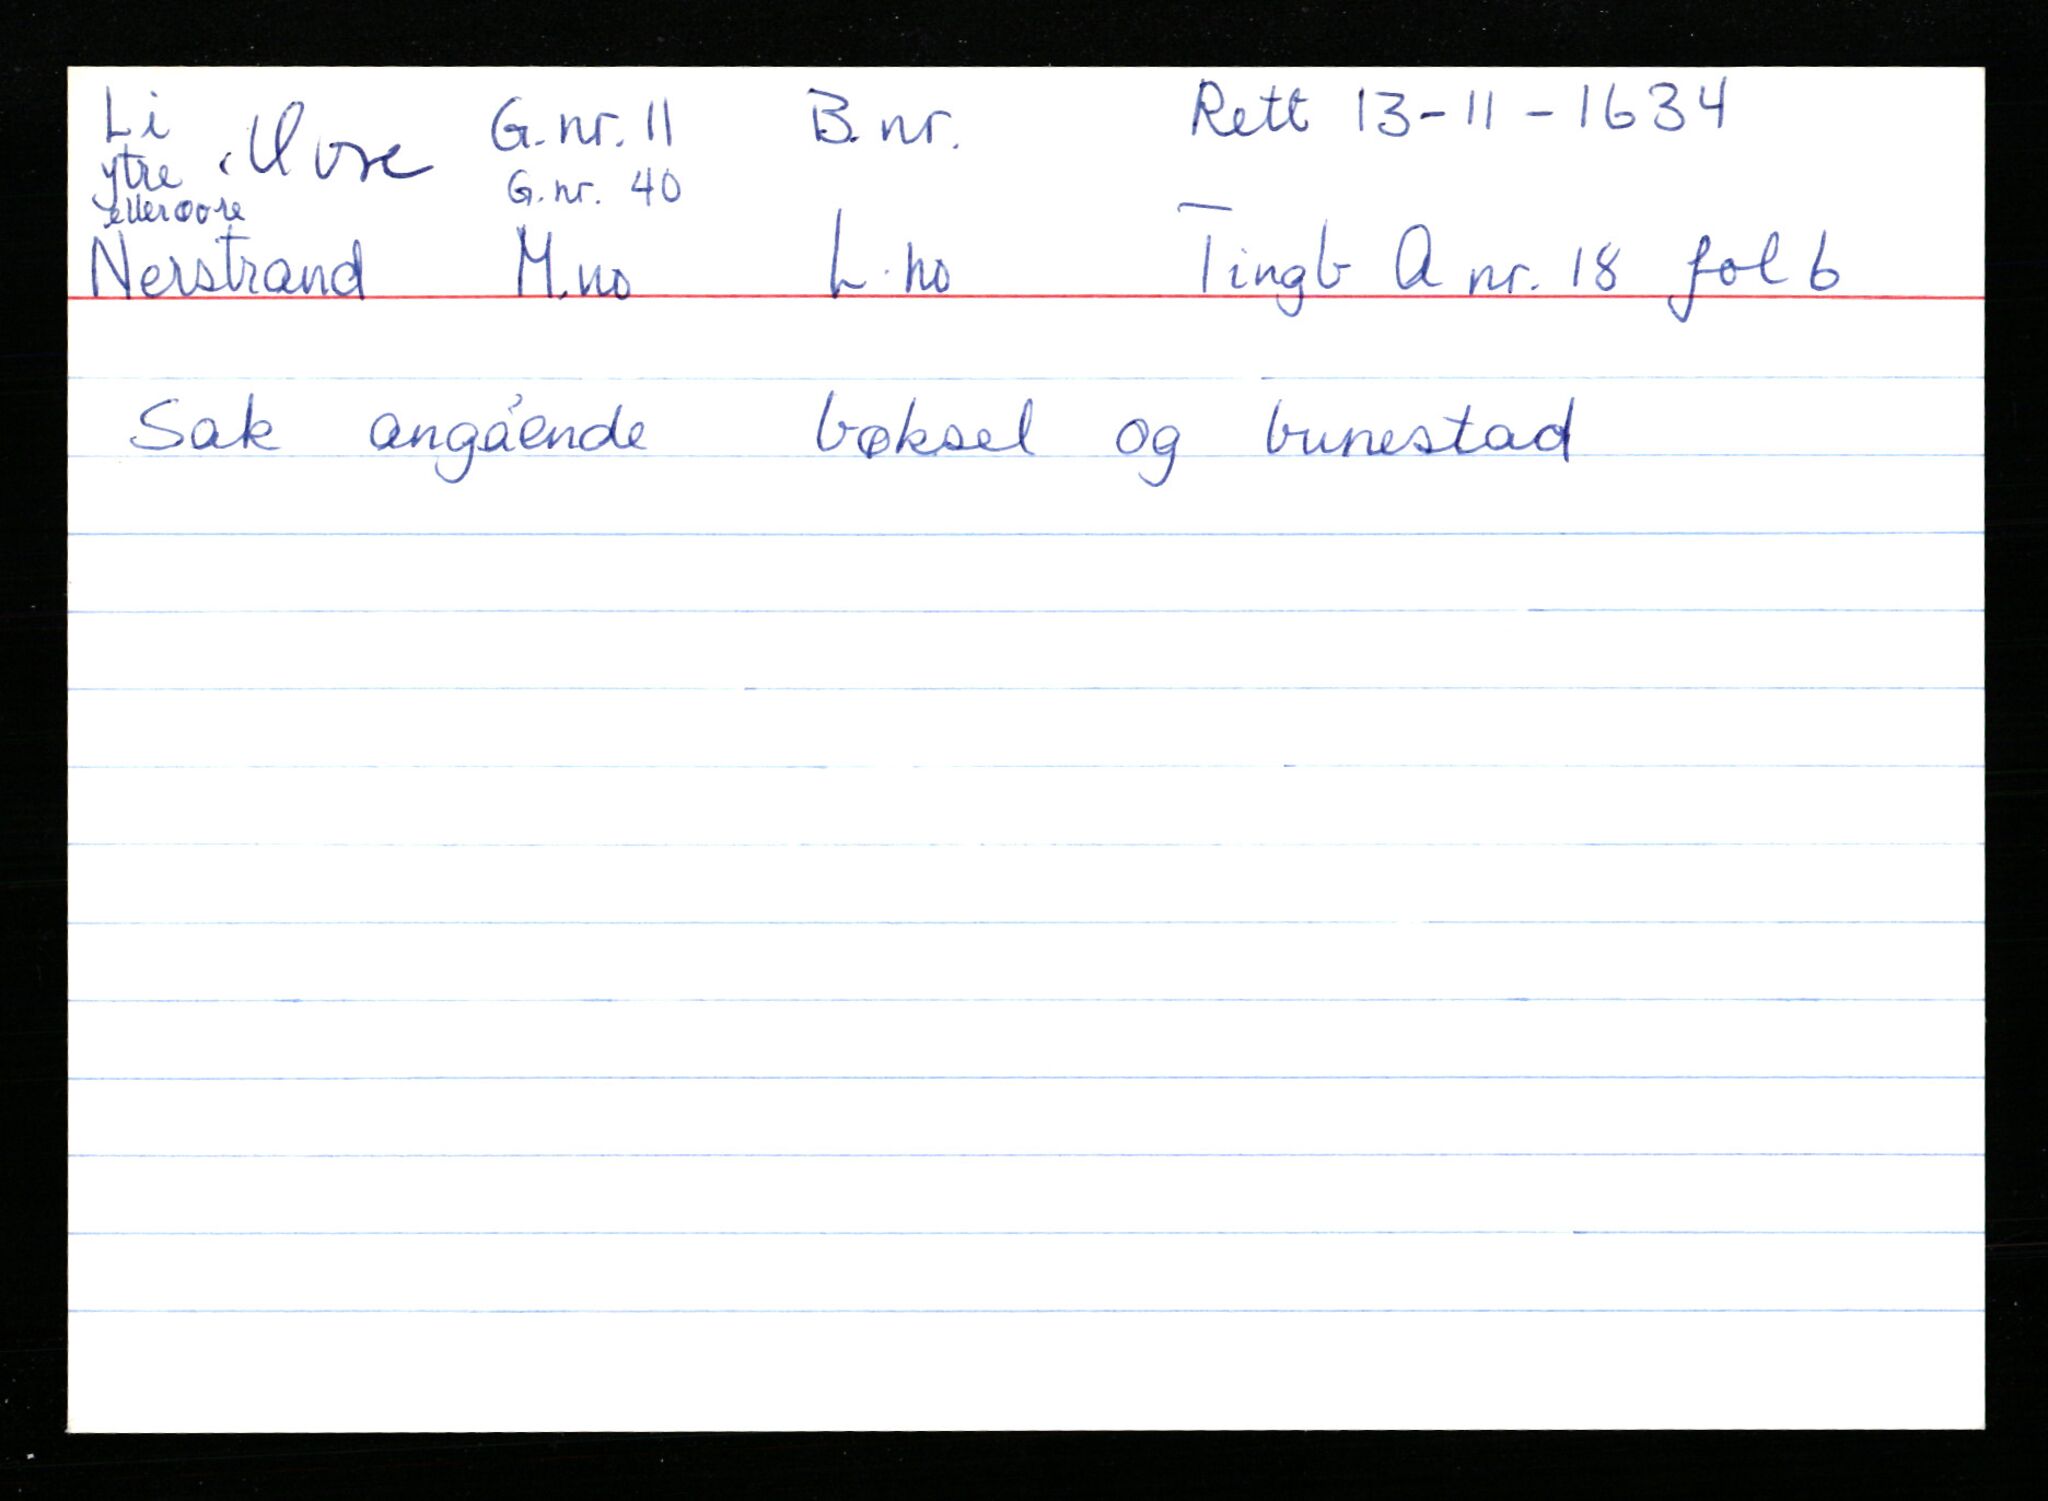 Li G.nr. 11 B.nr. Rett 13-11-1634
ytre G.nr. 40
eller øvre
Nerstrand M.no L.no Tingb A nr. 18 fol 6
Sak angående bøksel og bunestad